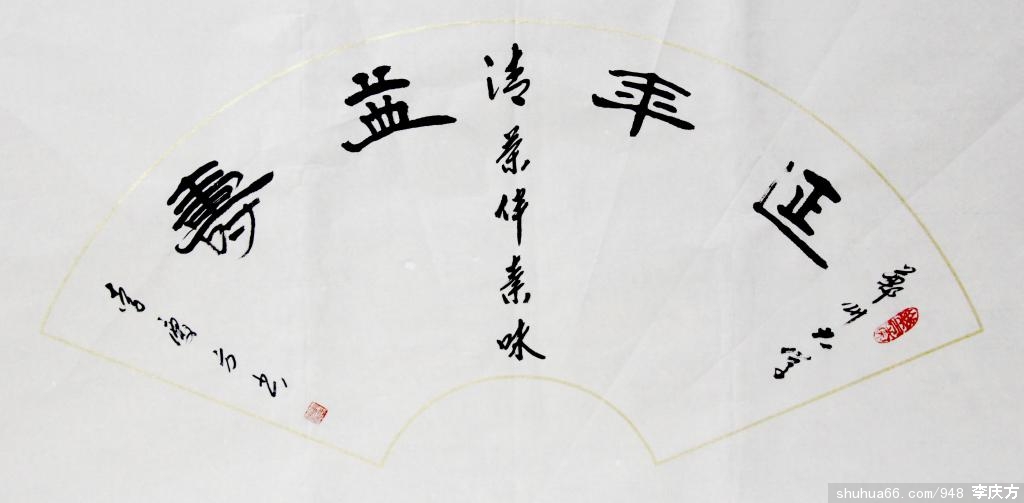 延年益壽
清茶伴素味
慶方书
shuhua66.com/948 李庆方